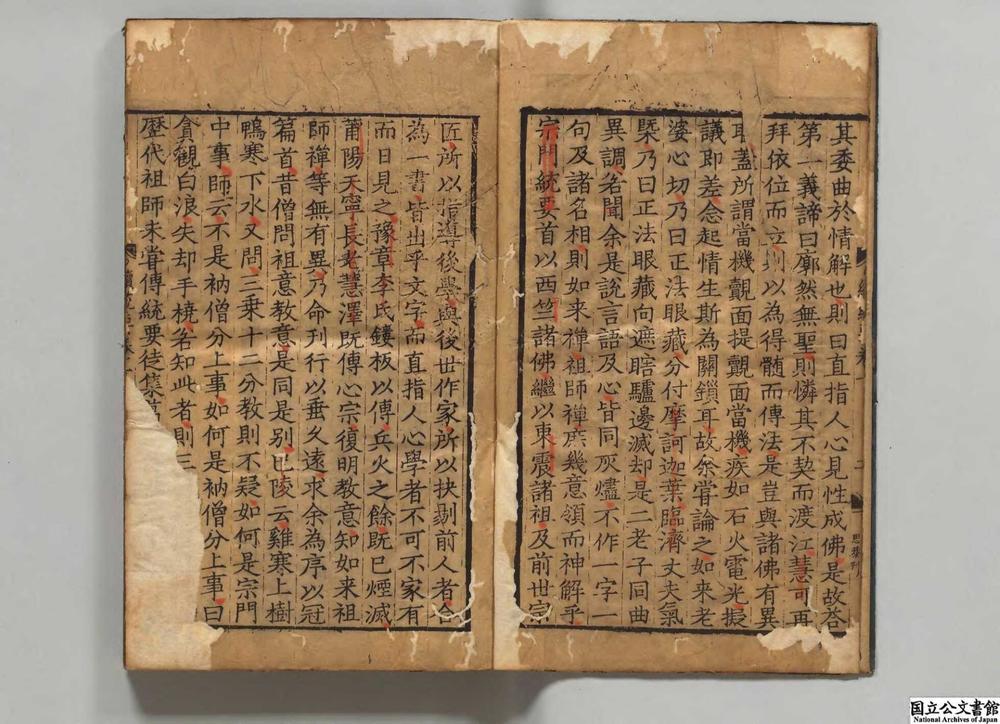 其委曲於情解也則曰直指人心見性成佛是故荅
第一義諦曰廓然無聖則憐其不契而渡江慧可再
拜依位而立則以為得髓而傳法是豈與諸佛有異
耳蓋所謂當機覿面提覿面當機疾如石火電光擬
議即差念起情生斯為關鎖耳故余甞論之如来老
婆心切乃曰正法眼藏分付摩訶迦葉臨濟丈夫氣
槩乃曰正法眼藏向遮瞎驢邊滅却是二老子同曲
異調名聞余是說言語及心皆同灰燼不作一字一
句及諸名相則如来禪祖師禪庶幾意領而神解乎
宗門統要首以西竺諸佛繼以東震諸祖及前世宗
匠所以指導後學與後世作家所以抉剔前人者合
為一書皆出乎文字而直指人心學者不可不家有
而日見之豫章李氏鏤板以傳兵火之餘既已煙滅
莆陽天寧長老慧澤既傳心宗復明教意知如来祖
師禪等無有異乃命刊行以垂久遠求余為序以冠
篇首昔僧問祖意教意是同是別巴陵云雞寒上樹
鴨寒下水又問三乗十二分教則不疑如何是宗門
中事師云不是衲僧分上事如何是衲僧分上事曰
貪觀白浪失却手橈名知此者則三
歷代祖師未甞傳統要徒集
二
国立公文書館
National Archives of Japan